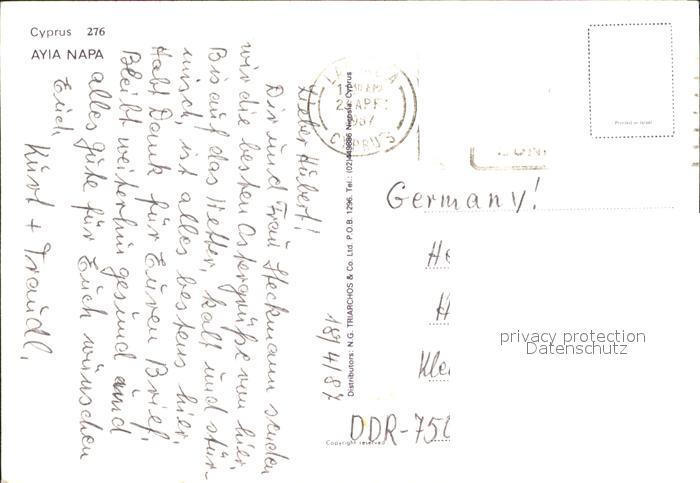 Cyprus 276
AYIA NAPA
Lieber Hubert!
Dir und Frau Steckmann senden
wir die besten Ostergrüße von hier.
Bis auf das Wetter, kalt und stür-
misch, ist alles bestens hier.
Habt Dank für Euren Brief.
Bleibt weiterhin gesund und
alles gute für Euch wünschen
Euch
Kurt + Traudl.
18/4/87
Distributors: N.G. TRIARCHOS & Co. Ltd. P.O.B. 1296. Tel.: (02)449886 Nicosia Cyprus
Copyright reserved
LARNACA
APR
1987
CYPRUS
Printed in Israel
Germany!
He
H
Kle
DDR-750
privacy protection
Datenschutz